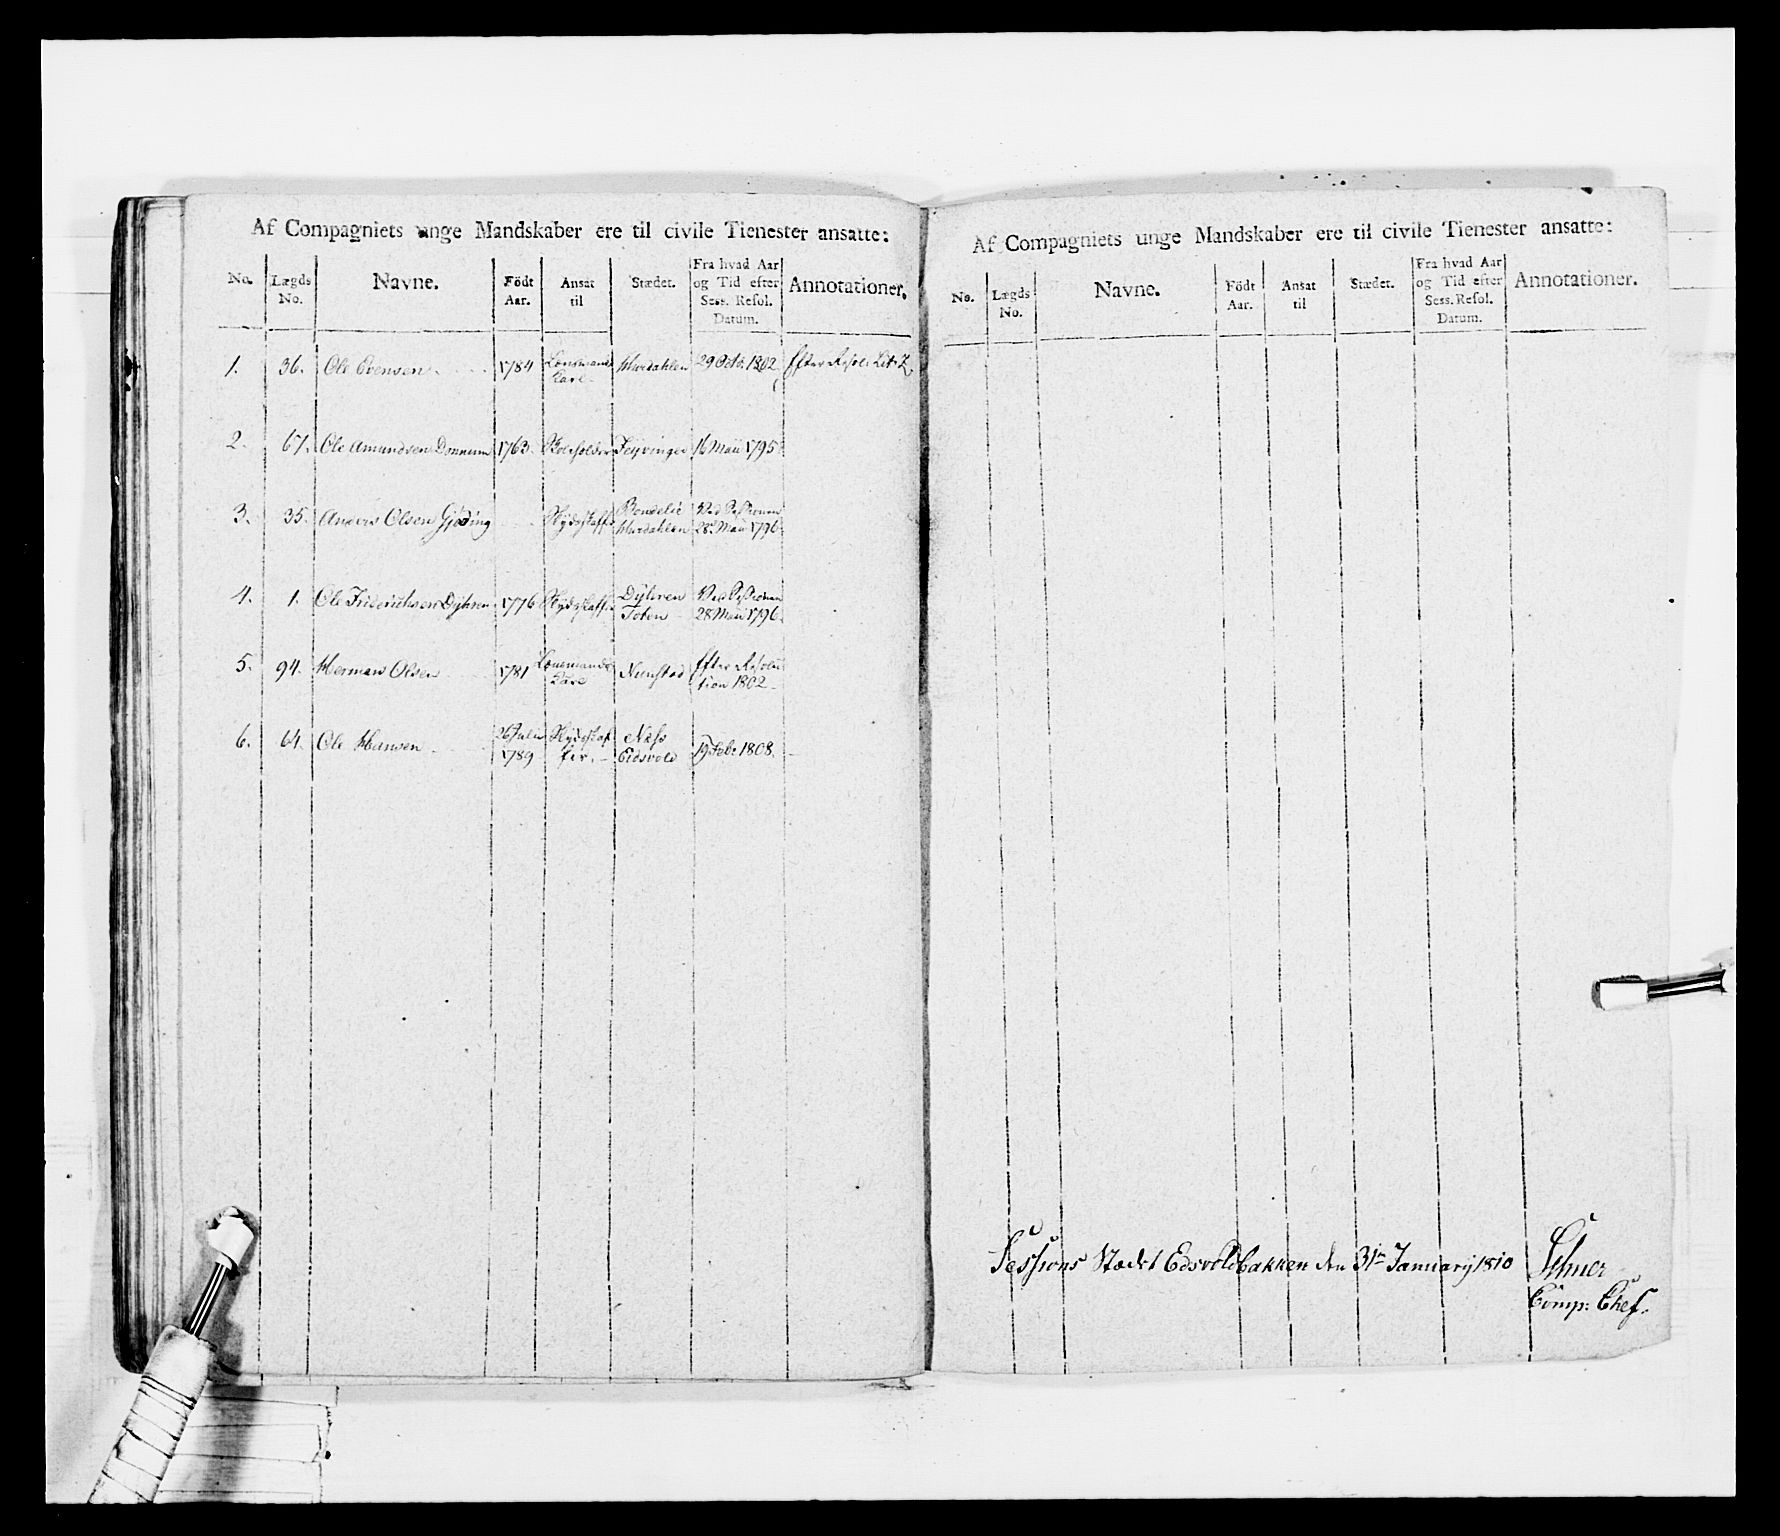 Af Compagniets unge Mandskaber ere til civile Tienester ansatte:
No. Lægds No. Navne. Födt Aar. Ansat til Stædet. Fra hvad Aar og Tid efter Sess. Resol. Datum. Annotationer.
1. 36. Ole Evensen 1784 Lensmands Karl Hurdahlen 29 Octb: 1802 Efter Resol: Litr Z
2. 67. Ole Amundsen Donnum 1763 Skoleholder Feyringen 16 Maii 1795
3. 35. Anders Olsen Gjøding Skydsskaffer Hurdahlen 28 Maii 1796
4. 1. Ole Friderichsen Dyhren 1776 Skydsskaffer Dyhren Toten 28 Maii 1796
5. 94. Herman Olsen 1781 Lensmands Efter Resolu
tion 1802
6. 64. Ole Hansen 26 Julii 1789 Skydsskaf
fer. Næss Eidsvold 19 Feb: 1808.
Af Compagniets unge Mandskaber ere til civile Tienester ansatte:
No. Lægds No. Navne. Födt Aar. Ansat til Stædet. Fra hvad Aar og Tid efter Sess. Resol. Datum. Annotationer.
Sessions Stædet Edsvoldbakken den 31te January 1810
Comp: Chef.